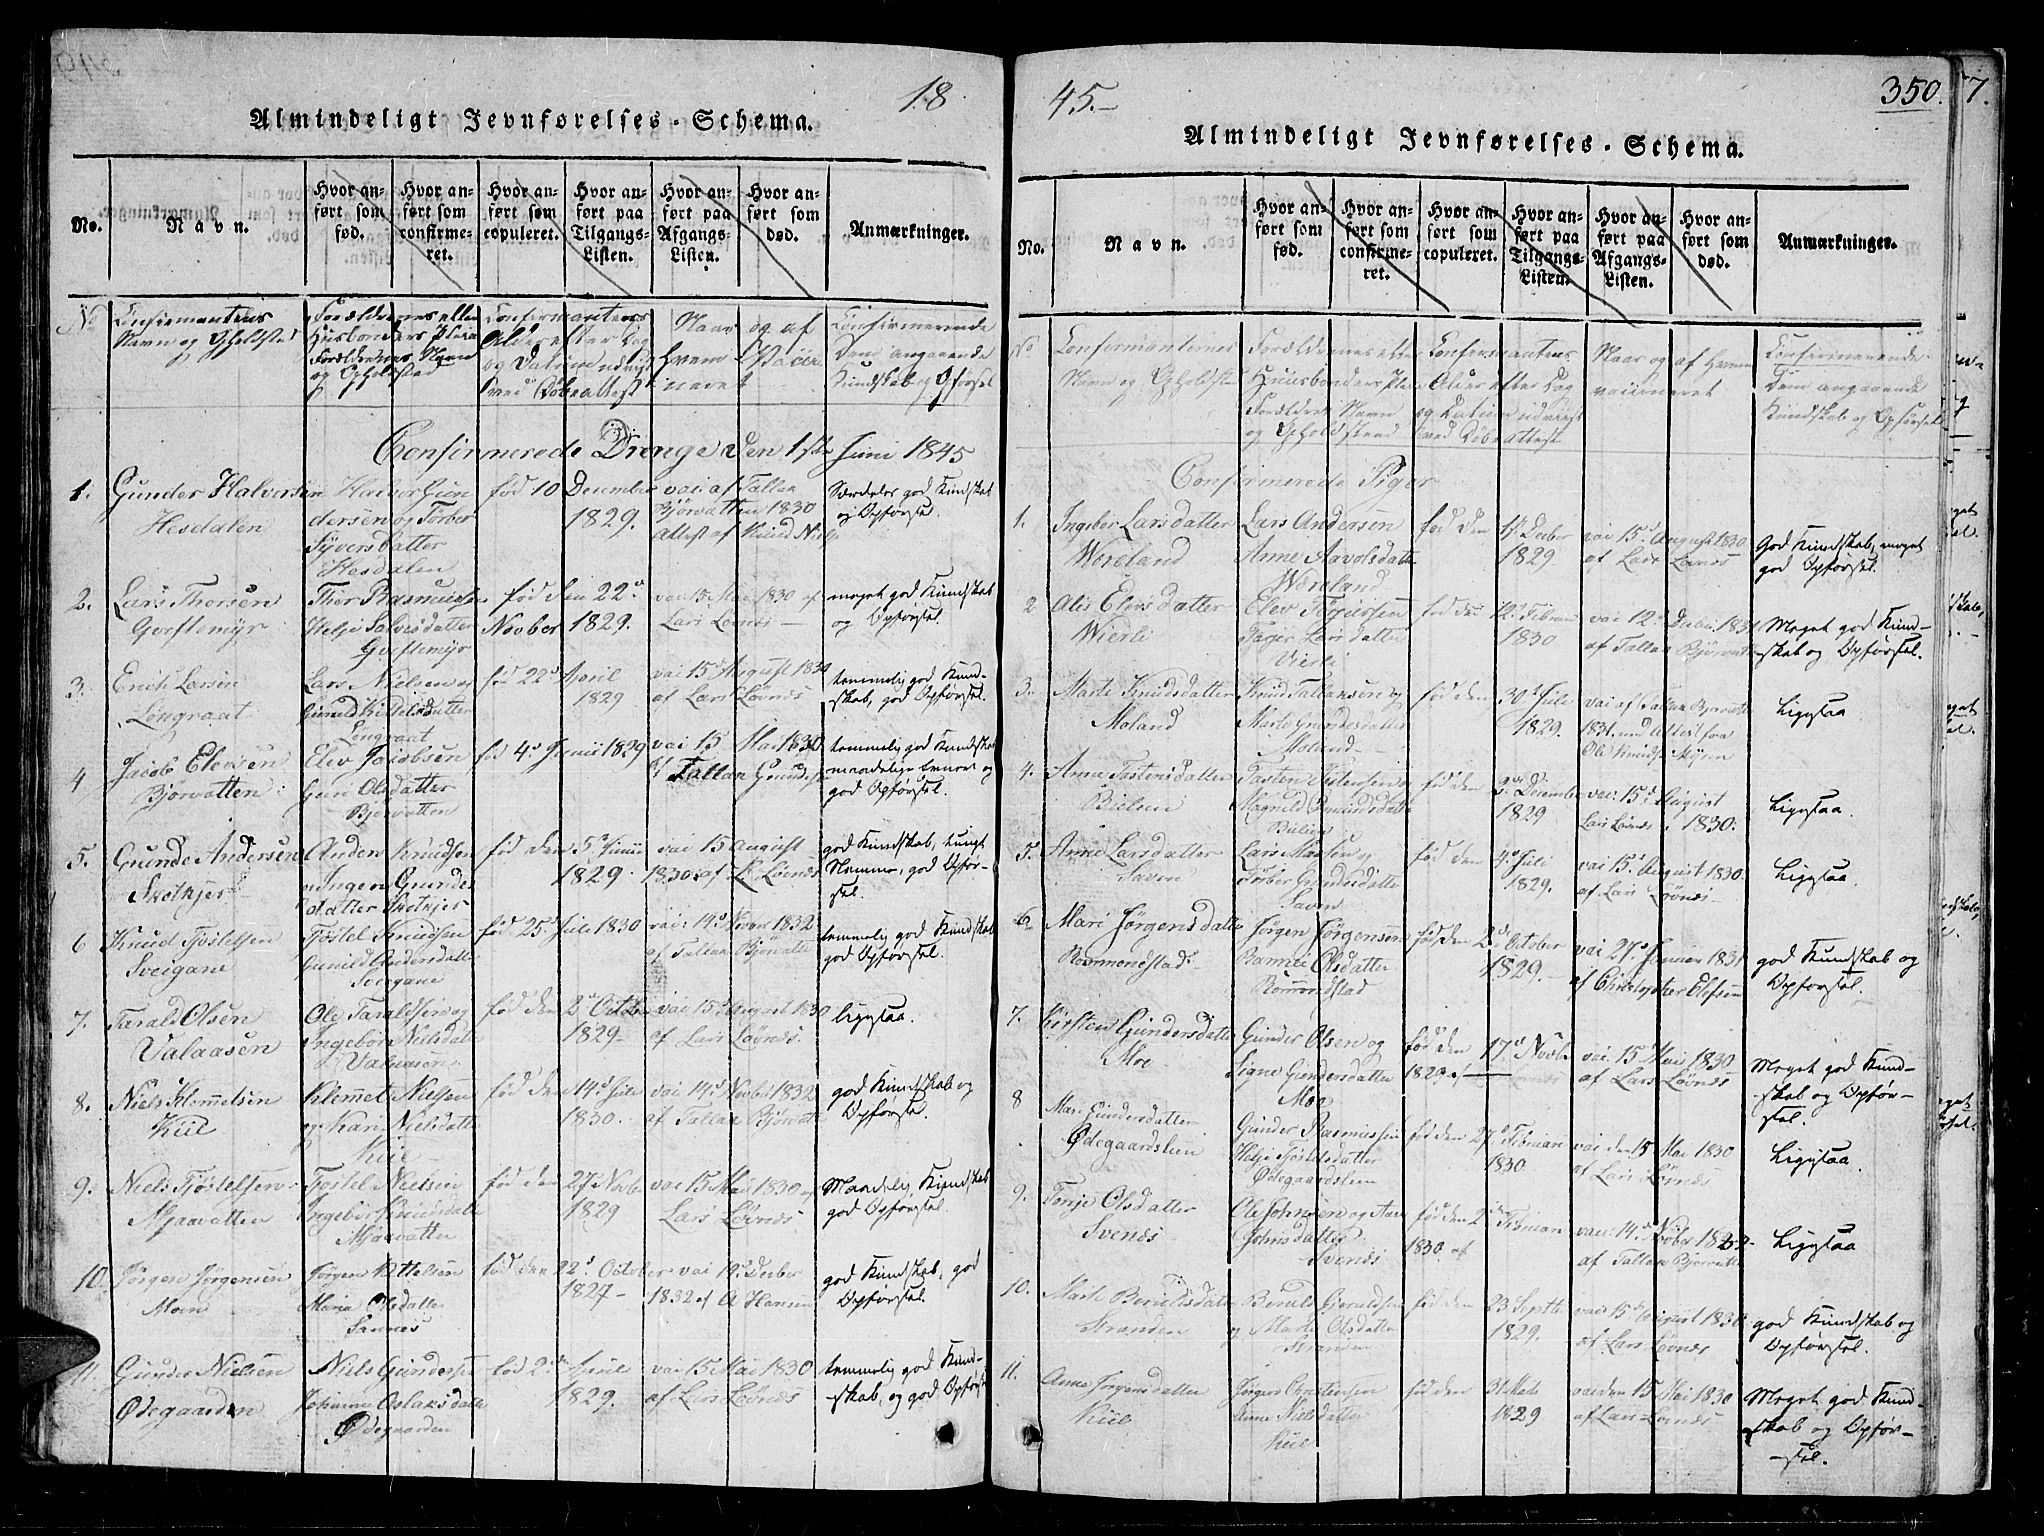 18
Almindeligt Jevnførelses-Schema.
No.
Navn.
Hvor anført som fød.
Hvor anført som confirmeret.
Hvor anført som copuleret.
Hvor anført paa Tilgangs-Listen.
Hvor anført paa Afgangs-Listen.
Hvor anført som død.
Anmærkninger.
No Confirmantens Navn og Opholdsted
Forældrenes eller Husbonders Pleie Forældrenes Navn og Opholdstad
Confirmantens Alder efter Dag og Datum udvist ved Døbeattest
Naar og af hvem Vaccineret
Confirmerende Dom angaaende Kundskab og Opførsel
Confirmerede Drenge den 1ste Juni 1845
1. Gunder Halvorsen Hesdalen
Halvor Gundersen og Torber Syversdatter Hesdalen
fød 10 December 1829.
vac af Tallak Bjørvatten 1830 Attest af Knud Niels
Særdeles god Kundskab og Opførsel.
2. Lars Thorsen Gveftemyr
Thor Rasmusen Helje Salvesdatter Gveftemyr
fød den 22d Novber 1829.
vac 15 Mai 1830 af Lars Løvnes
meget god Kundskab og Opførsel.
3. Erich Larsen Løngraat
Lars Nielsen og Gunild Kittelsdatter Longraat
fød 22d April 1829
vac 15d August 1830 af Lars Løvnes
temmelig god Kundskab, god Opførsel.
4. Jacob Elevsen Bjorvatten
Elev Jacobsen Guri Olsdatter Bjorvatten
fød 4d Junii 1829
vac 15 Mai 1830 af Tallak Gunuldsen
temmelig god Kundskab maadelige Evner og god Opførsel.
5. Gunde Andersen Skotkjer
Anders Knudsen og Ingen Gundersdatter Skotkjer
fød den 5d Junii 1829.
vac 15 August 1830. af L. Løvnes
god Kundskab, tungt Nemme, god Opførsel.
6 Knud Tjøstelsen Sveigane
Tjøstel Knudsen Gunild Andersdatte Svegane
fød 25d Jule 1830
vac: 14d Nover 1832 af Tallak Bjørvatte
temmelig god Kundskab god Opførsel.
7. Tarald Olsen Valaasen
Ole Taraldsen og Ingebor Nielsdatte Valaasen
fød den 2d October 1829
vac 15d August 1830 af Lars Løvnes.
ligesaa.
8. Niels Klemmetsen Kiil
Klemmet Nielsen og Kari Nielsdatte Kiil
fød den 14d Jule 1830.
vac 14d Novber 1832 af Tallak Bjørvatt
god Kundskab og Opførsel.
9. Niels Tjøstelsen Mjaavatten
Tjøstel Nielsen Ingebor Knudsdatte Mjaavatten
fød den 27 Novbe 1829
vac 15 Mai 1830 af Lars Løvnes
Maadelig Kundskab god Opførsel.
10. Jørgen Jørgensen Moen
Jørgen Kittelsen Maria Olsdatter Sennes
fød den 22d October 1827
vac 19d Decber 1832 af A Hansen
god Kundskab, god Opførsel.
11. Gunder Nielsen Ødegaarden
Niels Gundersen Johanne Oslaksdatte Ødegaarden
fød 2den April 1829.
vac 15 Mai 1830 af Lars Løvnes
temmelig god Kundskab, og god Opførsel
45.
350.
7.
Almindeligt Jevnførelses-Schema.
No.
Navn.
Hvor anført som fød.
Hvor anført som confirmeret.
Hvor anført som copuleret.
Hvor anført paa Tilgangs-Listen.
Hvor anført paa Afgangs-Listen.
Hvor anført som død.
Anmærkninger.
No Confirmanternes Navn og Opholdsted
Forældrenes eller Husbonders Pleie Forældres Navn og Opholdstead
Confirmantens Alder efter Dag og Datum udviist ved Døbeattest
Naar og af Hvem vaccineret
Confirmerende Dom angaaende Kundskab og Opførsel
Confirmerede Piger
1. Ingeber Larsdatter Woreland
Lars Andersen Anne Aavolsdatte Woreland
fød den 17 Decber 1829
vac 15d August 1830 af Lars Løvnes
God Kundskab, meget god Opførsel.
2 Alis Elevsdatter Wierli
Elev Tergiersen Tagjer Larsdatter Vierli
fød den 12d Februar 1830
vac 12d Decbr 1831 af Tallak Bjørvatte
Meget god Kundskab og Opførsel.
3. Marte Knudsdatter Moland
Knud Tallaksen og Marte Gundersdatter Moland
fød den 30d Jule 1829.
vac af Tallak Bjorvatte 1831. med Attest fra Ole Knudsen
Ligesaa
4. Anne Tastensdatter Bielen
Tasten og
fød den 2den December 1829
vac: 15d August Lars Løvnes 1830.
Ligesaa.
5. Anne Larsdatter Saven
Lars Madsen og Torber Gundersdatte Saven
fød den 4d Juli 1829.
vac 15d August 1830. af Lars Løvnes
Ligesaa.
6. Mari Jørgensdatte Rommenestad
Jørgen Jørgensen Olsdatter Rommenstad
fød den 2d October 1829.
vac 27d Januar 1831 af Christopher Elefsen
god Kundskab og Opførsel.
7. Kirsten Gundersdatter Moe
Gunder Olsen og Signe Gundersdatter Moe
fød den 17d Novbr 1829 af
vac 15 Mai 1830 af Lars Løvnes
Meget god Kundskab og Opførsel.
8 Mari Gundersdatter Ødegaardsleen
Gunder Rasmussen Helje Tjøstelsdatter Ødegaardsleen
fød den 27d Februar 1830.
vac den 15 Mai 1830 af Lars Løvnes
Ligesaa.
9. Tonje Olsdatter Svenæs
Ole Johnsen og Aase Johnsdatter Svenæs
fød den 2den Februar 1830. af
vac 14d Novbr 1832 af Tallak Bjørvatte
Ligesaa
10. Marte Beruldsdatter Stranden
Beruld Gjeruldsen og Marte Olsdatter Stranden
fød den 23 Septbr 1829.
vac 15d August 1830 af Lars Løvnæs
god Kundskab og Opførsel.
11. Anne Jørgensdatter Kiil
Jørgen Christensen Anne Nielsdatter Kiil
fød den 31 Mats 1829
vac den 15 Mai 1830 af Lars Løvnes
Meget god Kundskab og Opførsel.